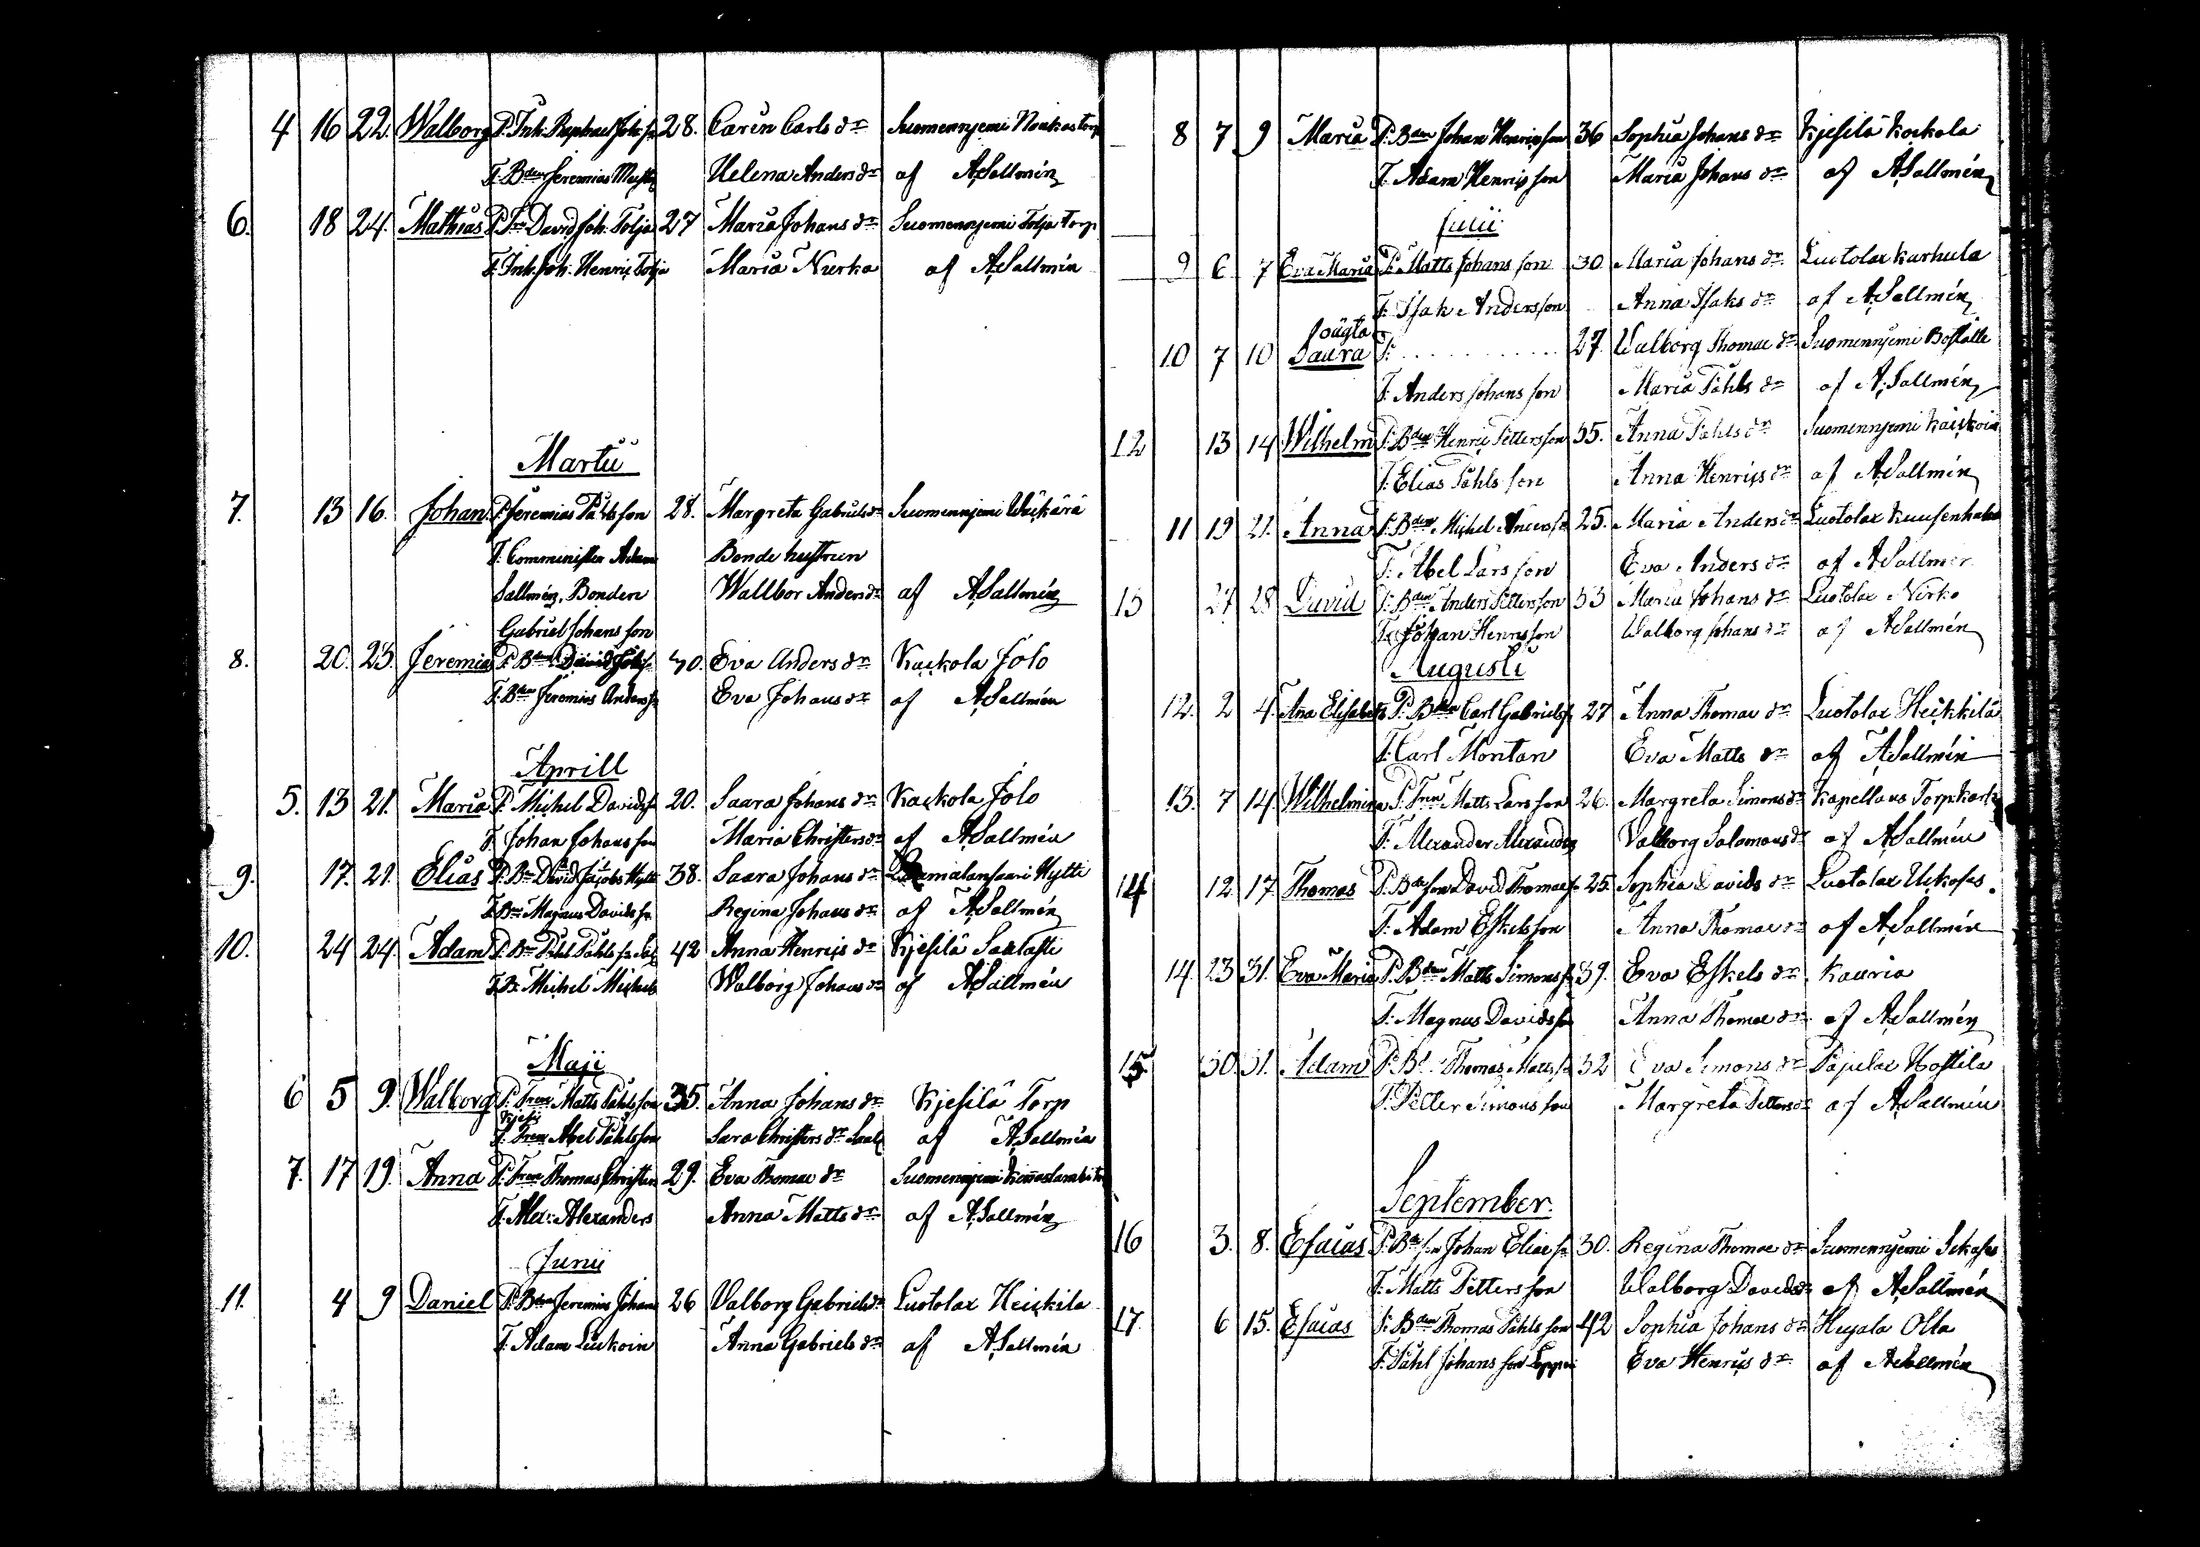 4 16 22. Walborg P. Inh. Raphael Joh. 28. Carin Carls dr Suomennjemi torp
F. Bden Jeremias Helena Anders dr af A. Sallmén
6. 18 24. Mathias P. David Joh. Tolja 27 Maria Johans dr Suomennjemi Tolja torp
F. Inh. Joh. Henriçs Tolja Maria Nurka af A. Sallmén
Martii
7. 13 16. Johan P. Jeremias Påhls son 28. Margreta Gabriels dr Suomennjemi
F. Comminister Adam Bonde hustrun
Sallmén, Bonden Wallbor Anders dr af A. Sallmén
Gabriel Johans son
8. 20. 23. Jeremia P. Bden David 30. Eva Anders dr Kaçkola Jolo
F. Bden Jeremias Anders Eva Johans dr af A. Sallmén
Aprill
5. 13 21. Maria P. Michel Davids 20. Saara Johans dr Kaçkola Jolo
F. Johan Johans son Maria Christers dr af A. Sallmén
9. 17. 21. Elias P. Bn David Jacobs Hytti 38. Saara Johans dr Hytti
F. Bn Magnus Davids Regina Johans dr af A. Sallmén
10. 24 24. Adam P. Bn Påhl Påhls 42 Anna Henriçs dr Kjesilä
F. Bn Michel Michels Walborg Johans dr af A. Sallmén
Maji
6 5 9. Walborg P. Matts Påhls son 35. Anna Johans dr Kjesilä Torp
F. Abel Påhls son Sara Christers dr af A. Sallmén
7. 17 19. Anna P. Thomas Christers 29. Eva Thomae dr Suomennjemi
F. Alex: Alexanders Anna Matts dr af A. Sallmén
Junii
11. 4 9 Daniel P. Bden Jeremias Johans 26 Valborg Gabriels dr Luotolax Heiçkila
F. Adam Anna Gabriels dr af A. Sallmén
8 7 9 Maria P. Bden Johan Henriçs son 36 Sophia Johans dr Kjesilä Kockola
F. Adam Henriçs son Maria Johans dr af A. Sallmén
Julii
9 6 7 Eva Maria P. Matts Johans son 30 Maria Johans dr Luotolax Karhula
F. Isak Anders son Anna Isaks dr af A. Sallmén
oägta
10 7 10 Saara P. . . . . . . . . . 27. Walborg Thomae dr Suomennjemi Boställe
F. Anders Johans son Maria Påhls dr af A. Sallmén
12 13 14 Wilhelm P. Bden Henriç Petters son 35. Anna Påhls dr Suomennjemi
F. Elias Påhls son Anna Henriçs dr af A. Sallmén
11 19 21. Anna P. Bden Michel Anders 25. Maria Anders dr Luotolax
F. Abel Lars son Eva Anders dr af A. Sallmén
13 27 28 David P. Bden Anders Petters son 33 Maria Johans dr Luotolax Nirko
F. Johan Henriçs son Walborg Johans dr af A. Sallmén
Augusti
12. 2 4. Ana Elisabeth P. Bden Carl Gabriels 27 Anna Thomae dr Luotolax Heikkilä
F. Carl Montan Eva Matts dr af A. Sallmén
13. 7 14. Wilhelmina P. Matts Lars son 26. Margreta Simons dr Kapellans Torp
F. Alexander Alexanders Valborg Salomons dr af A. Sallmén
14 12 17. Thomas P. Bde son David Thomae 25. Sophia Davids dr Luotolax
F. Adam Eskels son Anna Thomae dr af A. Sallmén
14. 23 31. Eva Maria P. Bden Matts Simons 39. Eva Eskels dr Kauria
F. Magnus Davids son Anna Thomae dr af A. Sallmén
15 30. 31. Adam P. Thomas Matts 32 Eva Simons dr
F. Petter Simons son Margreta Petters dr af A. Sallmén
September.
16 3. 8. Esaias P. Bde son Johan Eliae 30. Regina Thomae dr Suomennjemi
F. Matts Petters son Walborg Davids dr af A. Sallmén
17. 6 15. Esaias P. Bden Thomas Påhls son 42 Sophia Johans dr Hujala Olla
F. Påhl Johans son Eva Henriçs dr af A. Sallmén